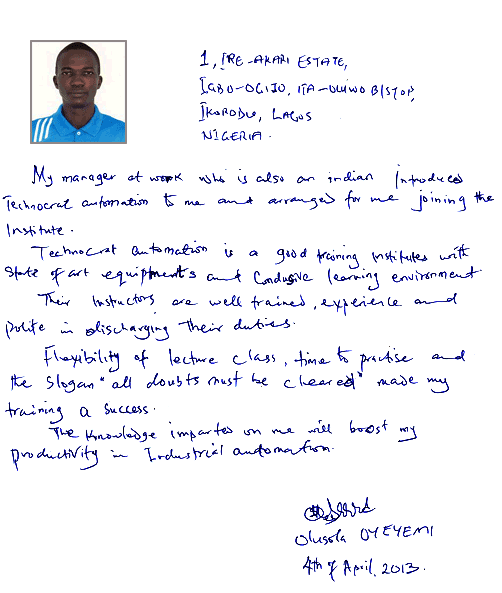 1, IRE-AKARI ESTATE,
IGBO-OGIJO, ITA-OLUWO B/STOP,
IKORODU, LAGOS
NIGERIA.
My manager at work who is also an indian Introduced
Technocrat automation to me and arranged for me joining the
Institute.
Technocrat automation is a good training Institutes with
State of art equipments and Conducive learning environment.
Their Instructors are well trained, experience and
polite in discharging their duties.
Flexibility of lecture class, time to practise and
the Slogan "all doubts must be cleared" made my
training a success.
The knowledge imparted on me will boost my
productivity in Industrial automation.
Olusola OYEYEMI
4th of April, 2013.